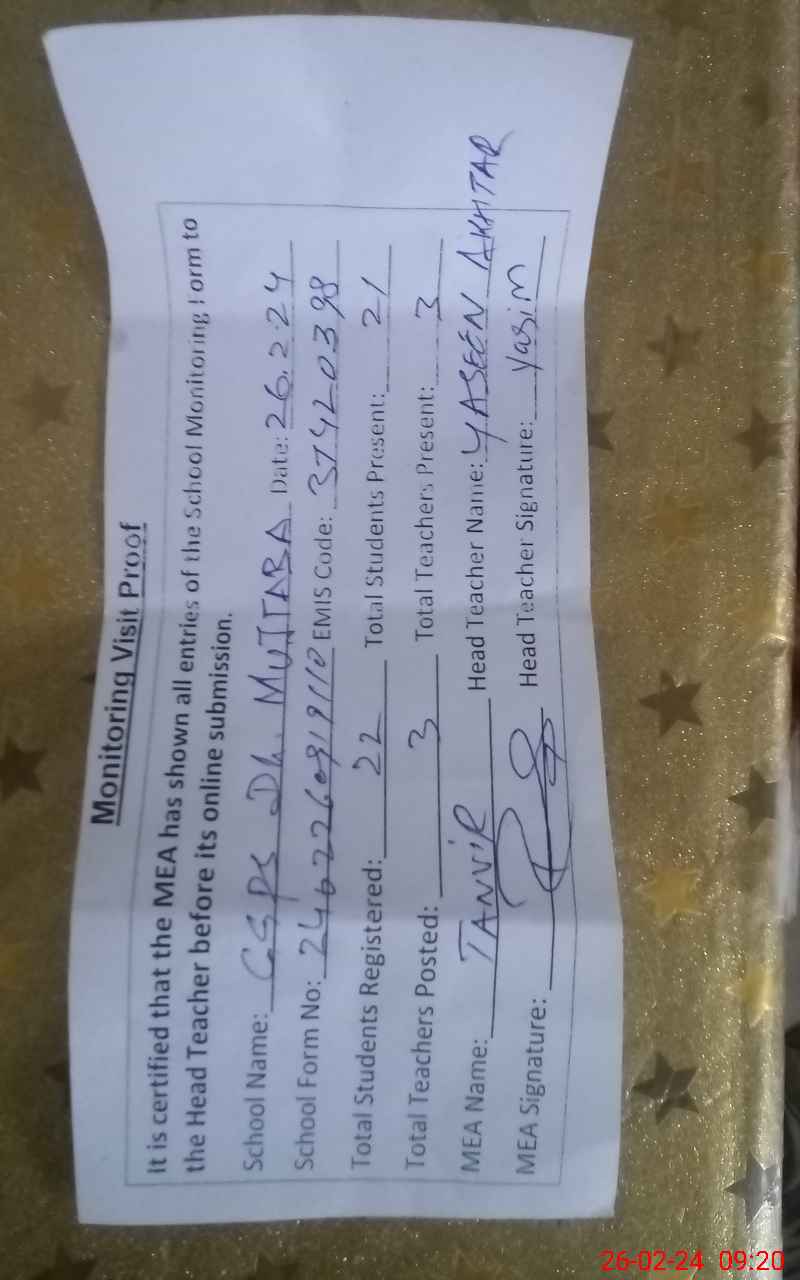 Monitoring Visit Proof
It is certified that the MEA has shown all entries of the School Monitoring Form to
the Head Teacher before its online submission.
School Name: GSPS Dh. MUJTABA Date: 26.2.24
School Form No: 2462260919110 EMIS Code: 37420398
Total Students Registered: 22 Total Students Present: 21
Total Teachers Posted: 3 Total Teachers Present: 3
MEA Name: TANVIR Head Teacher Name: YASEEN AKHTAR
MEA Signature: Head Teacher Signature: Yasin
26-02-24 09:20